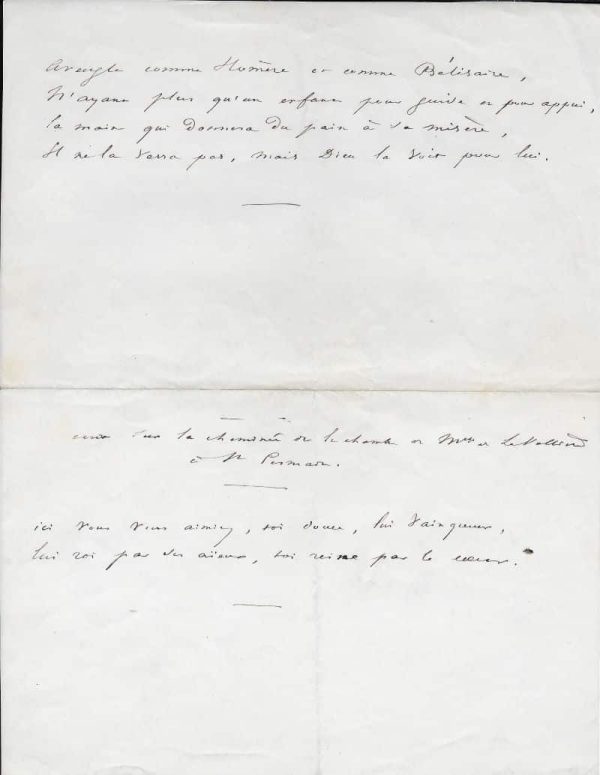 Aveugle comme Homère et comme Bélisaire,
N'ayant plus qu'un enfant pour guide et pour appui,
la main qui donnera du pain à sa misère,
Il ne la verra pas, mais Dieu la voit pour lui.
sur la cheminée de la chambre de Mme de La Vallière
à St Germain.
ici vous vous aimiez, toi douce, lui vainqueur,
lui roi par ses aïeux, toi reine par le cœur.